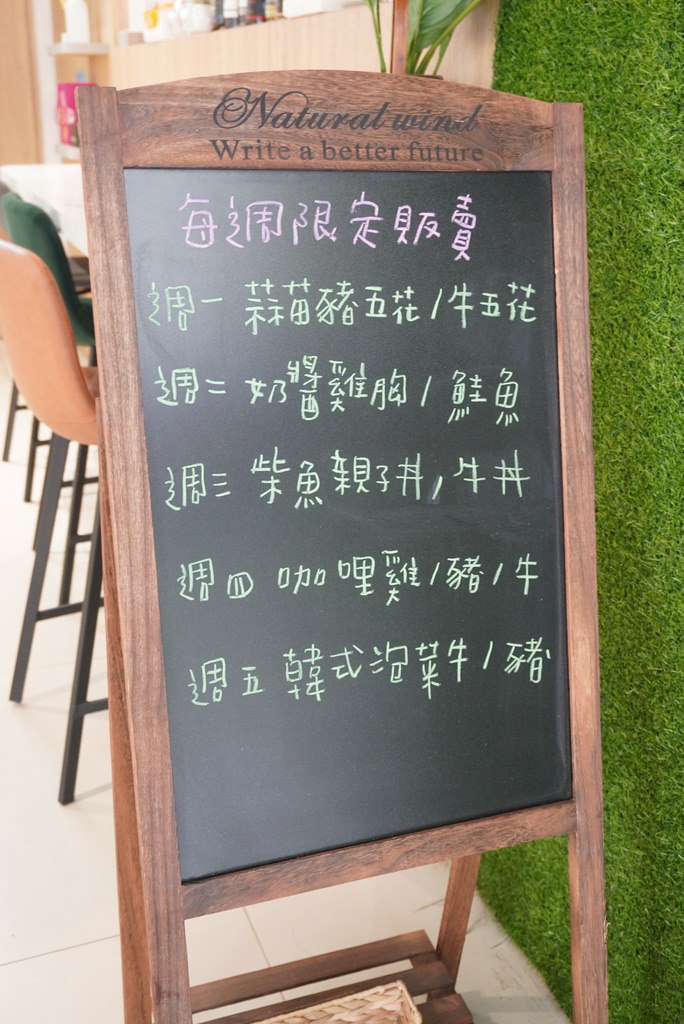 Natural wind
Write a better future
每週限定販賣
週一 蒜苗豬五花/牛五花
週二 奶醬雞胸/鮭魚
週三 柴魚親子丼/牛丼
週四 咖哩雞/豬/牛
週五 韓式泡菜牛/豬